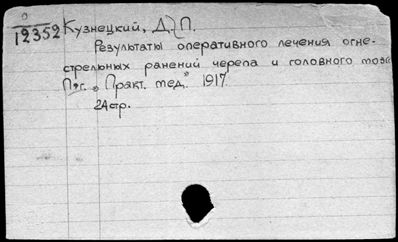 12352 Кузнецкий, Д. П.
Результаты оперативного лечения огне-
стрельных ранений черепа и головного мозга
Птг. „Практ. мед." 1917.
24 стр.